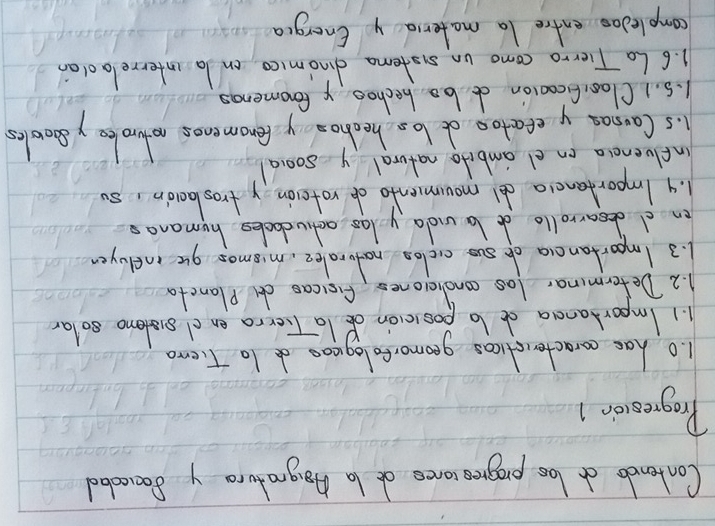 Contenido de las progresiones de la Asignatura y Sociedad
Progresión 1
1.0 Las características geomorfologicas de la Tierra
1.1 Importancia de la posición de la Tierra en el sistema solar
1.2 Determinar las condiciones físicas del Planeta
1.3 Importancia de sus ciclos naturales, mismos que influyen
en el desarrollo de la vida y las actividades humanas
1.4 Importancia del movimiento de rotación y traslación, su
influencia en el ámbito natural y social
1.5 Causas y efectos de los hechos y fenomenos naturales y sociales
1.5.1 Clasificación de los hechos y fenomenos
1.6 La Tierra como un sistema dinámico en la interrelación
complejas entre la materia y Energia